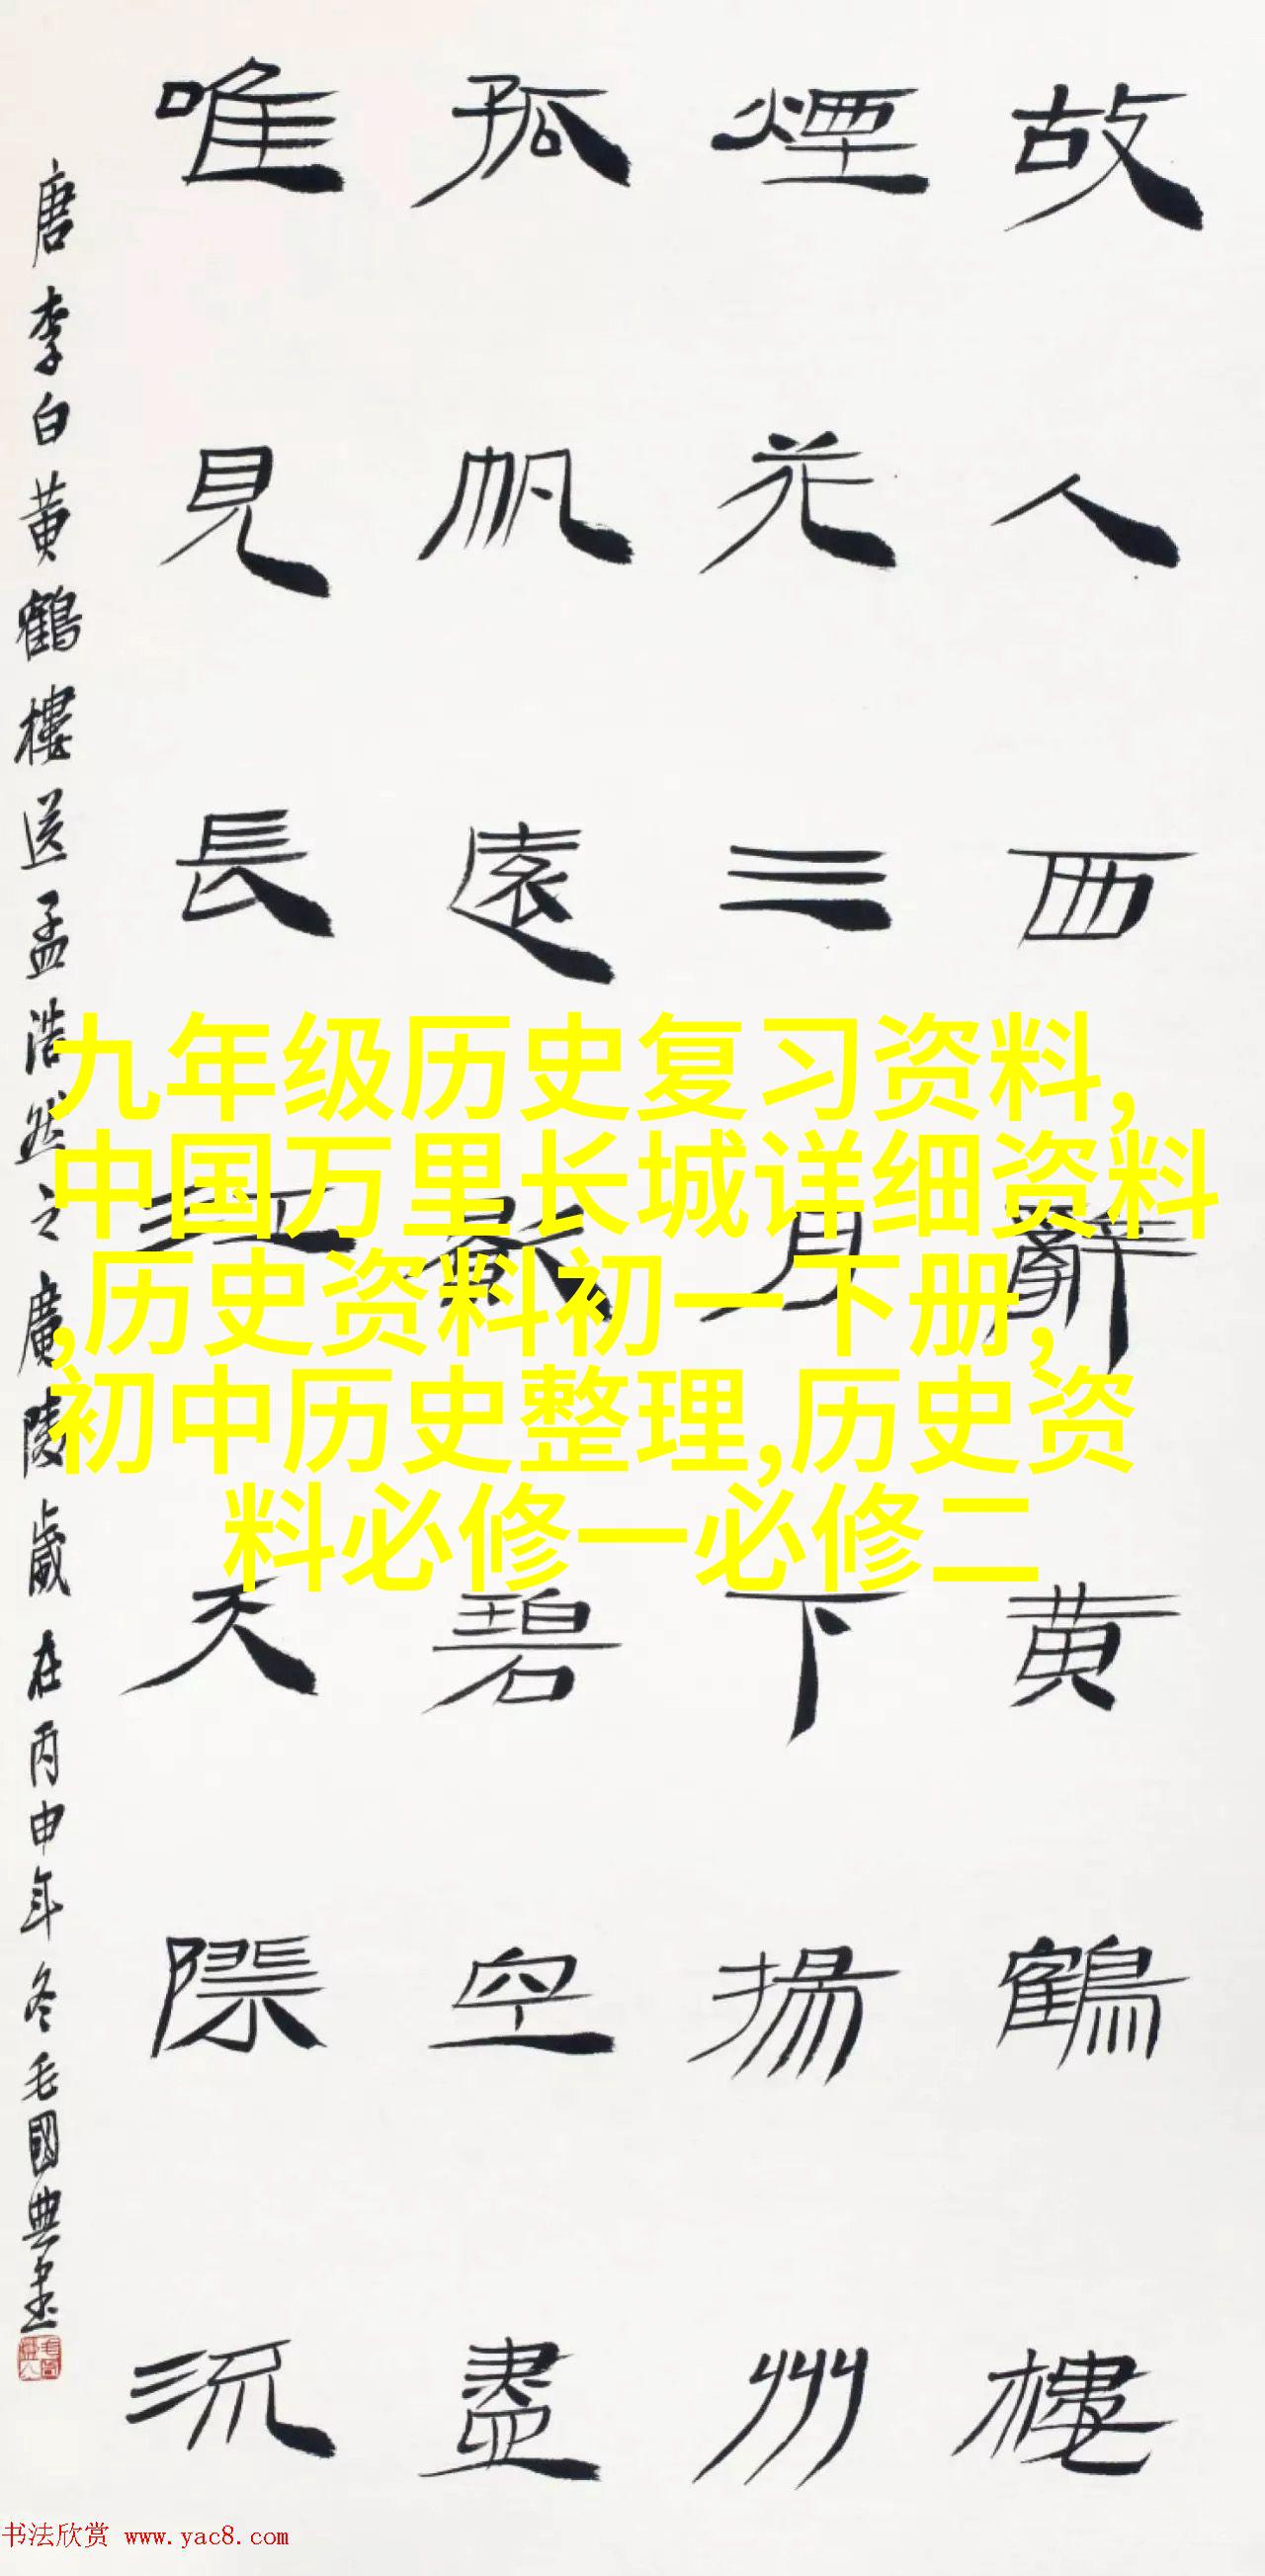 故人西辭黄鶴樓
煙花三月下揚州
孤帆遠影碧空盡
唯見長江天際流
唐李白黄鶴樓送孟浩然之廣陵歲在丙申年冬毛國典書
九年级历史复习资料,
中国万里长城详细资料
,历史资料初一下册,
初中历史整理,历史资
料必修一必修二
书法欣赏 www.yac8.com